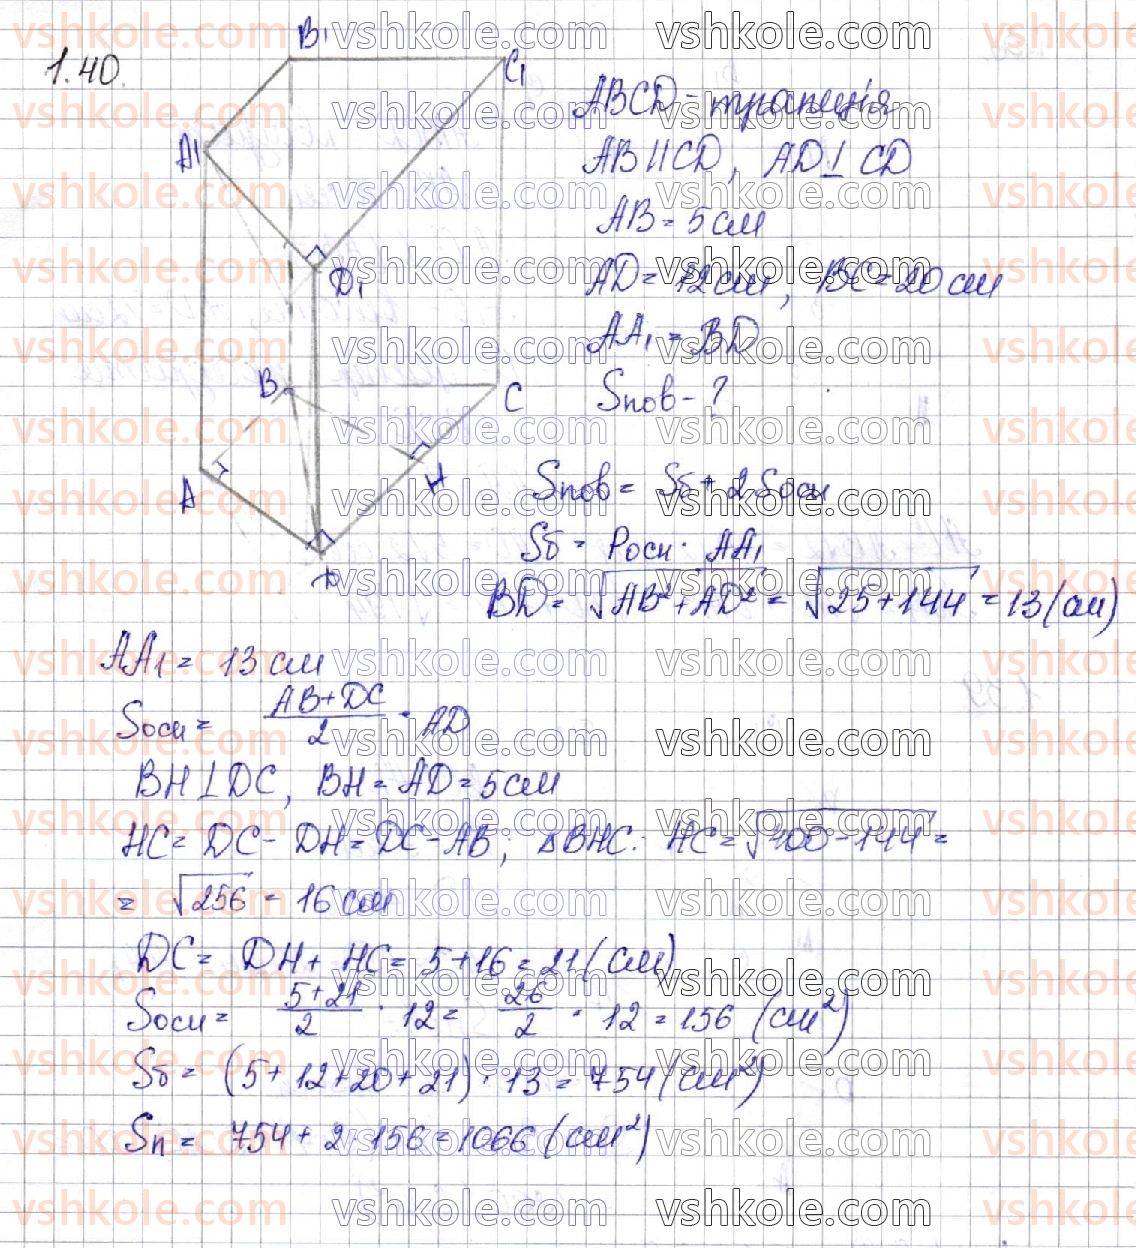 1.40.
B₁
C₁
A₁
D₁
B
C
A
H
D
ABCD - трапеція
AB || CD, AD ⊥ CD
AB = 5 см
AD = 12 см, BC = 20 см
AA₁ = BD
Sпов - ?
Sпов = Sб + 2Sосн
Sб = Pосн · AA₁
BD = √(AB² + AD²) = √(25 + 144) = 13 (см)
AA₁ = 13 см
Sосн = (AB + DC)/2 · AD
BH ⊥ DC, BH = AD = 5 см
HC = DC - DH = DC - AB; △BHC: HC = √(400 - 144) =
= √256 = 16 см
DC = DH + HC = 5 + 16 = 21 (см)
Sосн = (5 + 21)/2 · 12 = 26/2 · 12 = 156 (см²)
Sб = (5 + 12 + 20 + 21) · 13 = 754 (см²)
Sп = 754 + 2 · 156 = 1066 (см²)
vshkole.com